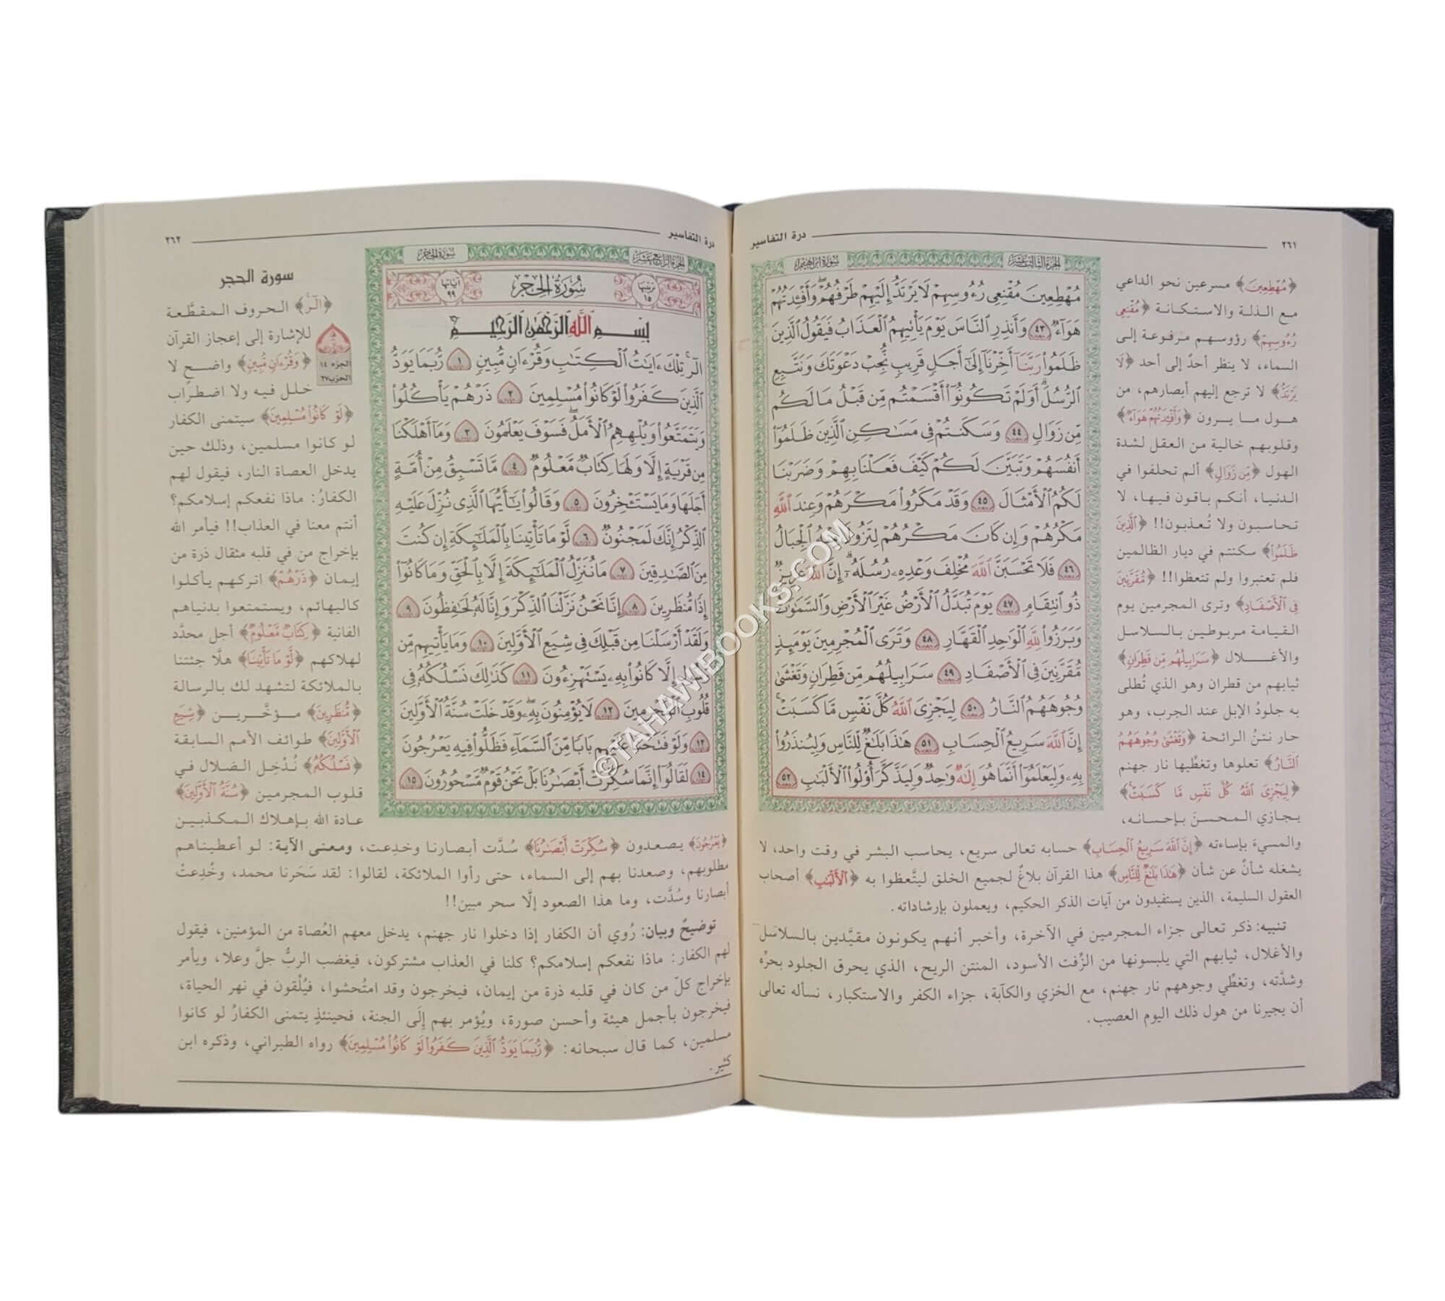 درة التفاسير ٢٦١
الجزء الثالث عشر سورة إبراهيم
مُهْطِعِينَ مُقْنِعِي رُءُوسِهِمْ لَا يَرْتَدُّ إِلَيْهِمْ طَرْفُهُمْ ۖ وَأَفْـِٔدَتُهُمْ
هَوَآءٌ ٤٣ وَأَنذِرِ ٱلنَّاسَ يَوْمَ يَأْتِيهِمُ ٱلْعَذَابُ فَيَقُولُ ٱلَّذِينَ
ظَلَمُوا۟ رَبَّنَآ أَخِّرْنَآ إِلَىٰٓ أَجَلٍ قَرِيبٍ نُّجِبْ دَعْوَتَكَ وَنَتَّبِعِ
ٱلرُّسُلَ ۗ أَوَلَمْ تَكُونُوٓا۟ أَقْسَمْتُم مِّن قَبْلُ مَا لَكُم
مِّن زَوَالٍ ٤٤ وَسَكَنتُمْ فِى مَسَـٰكِنِ ٱلَّذِينَ ظَلَمُوٓا۟
أَنفُسَهُمْ وَتَبَيَّنَ لَكُمْ كَيْفَ فَعَلْنَا بِهِمْ وَضَرَبْنَا
لَكُمُ ٱلْأَمْثَالَ ٤٥ وَقَدْ مَكَرُوا۟ مَكْرَهُمْ وَعِندَ ٱللَّهِ
مَكْرُهُمْ وَإِن كَانَ مَكْرُهُمْ لِتَزُولَ مِنْهُ ٱلْجِبَالُ
٤٦ فَلَا تَحْسَبَنَّ ٱللَّهَ مُخْلِفَ وَعْدِهِۦ رُسُلَهُۥٓ ۗ إِنَّ ٱللَّهَ عَزِيزٌ
ذُو ٱنتِقَامٍ ٤٧ يَوْمَ تُبَدَّلُ ٱلْأَرْضُ غَيْرَ ٱلْأَرْضِ وَٱلسَّمَـٰوَٰتُ
وَبَرَزُوا۟ لِلَّهِ ٱلْوَٰحِدِ ٱلْقَهَّارِ ٤٨ وَتَرَى ٱلْمُجْرِمِينَ يَوْمَئِذٍ
مُّقَرَّنِينَ فِى ٱلْأَصْفَادِ ٤٩ سَرَابِيلُهُم مِّن قَطِرَانٍ وَتَغْشَىٰ
وُجُوهَهُمُ ٱلنَّارُ ٥٠ لِيَجْزِىَ ٱللَّهُ كُلَّ نَفْسٍ مَّا كَسَبَتْ ۚ
إِنَّ ٱللَّهَ سَرِيعُ ٱلْحِسَابِ ٥١ هَـٰذَا بَلَـٰغٌ لِّلنَّاسِ وَلِيُنذَرُوا۟
بِهِۦ وَلِيَعْلَمُوٓا۟ أَنَّمَا هُوَ إِلَـٰهٌ وَٰحِدٌ وَلِيَذَّكَّرَ أُو۟لُوا۟ ٱلْأَلْبَـٰبِ ٥٢
﴿مُهْطِعِينَ﴾ مسرعين نحو الداعي
مع الذلة والاستكانة ﴿مُقْنِعِي
رُءُوسِهِمْ﴾ رؤوسهم مرفوعة إلى
السماء، لا ينظر أحد إلى أحد ﴿لَا
يَرْتَدُّ﴾ لا ترجع إليهم أبصارهم، من
هول ما يرون ﴿وَأَفْئِدَتُهُمْ هَوَاءٌ﴾
وقلوبهم خالية من العقل لشدة
الهول ﴿مِّن زَوَالٍ﴾ ألم تحلفوا في
الدنيا، أنكم باقون فيها، لا
تحاسبون ولا تُعذبون!! ﴿الَّذِينَ
ظَلَمُوا﴾ سكنتم في ديار الظالمين
فلم تعتبروا ولم تتعظوا!! ﴿مُّقَرَّنِينَ
فِي الْأَصْفَادِ﴾ وترى المجرمين يوم
القيامة مربوطين بالسلاسل
والأغلال ﴿سَرَابِيلُهُم مِّن قَطِرَانٍ﴾
ثيابهم من قطران وهو الذي تُطلى
به جلودُ الإبل عند الجرب، وهو
حار نتنُ الرائحة ﴿وَتَغْشَىٰ وُجُوهَهُمُ
النَّارُ﴾ تعلوها وتغطِّيها نار جهنم
﴿لِيَجْزِيَ اللَّهُ كُلَّ نَفْسٍ مَّا كَسَبَتْ﴾
يجازي المحسنَ بإحسانه،
والمسيءَ بإساءته ﴿إِنَّ اللَّهَ سَرِيعُ الْحِسَابِ﴾ حسابه تعالى سريع، يحاسب البشر في وقت واحد، لا
يشغله شأنٌ عن شأن ﴿هَٰذَا بَلَاغٌ لِّلنَّاسِ﴾ هذا القرآن بلاغٌ لجميع الخلق ليتَّعظوا به ﴿الْأَلْبَابِ﴾ أصحاب
العقول السليمة، الذين يستفيدون من آيات الذكر الحكيم، ويعملون بإرشاداته.
تنبيه: ذكر تعالى جزاء المجرمين في الآخرة، وأخبر أنهم يكونون مقيَّدين بالسلاسل
والأغلال، ثيابهم التي يلبسونها من الزِّفت الأسود، المنتن الريح، الذي يحرق الجلود بحرِّه
وشدَّته، وتغطِّي وجوههم نار جهنم، مع الخزي والكآبة، جزاء الكفر والاستكبار، نسأله تعالى
أن يجيرنا من هول ذلك اليوم العصيب.
درة التفاسير ٢٦٢
الجزء الرابع عشر سورة الحجر
ترتيبها ١٥ سُورَةُ الحِجْرِ آياتها ٩٩
بِسْمِ ٱللَّهِ ٱلرَّحْمَـٰنِ ٱلرَّحِيمِ
الٓر ۚ تِلْكَ ءَايَـٰتُ ٱلْكِتَـٰبِ وَقُرْءَانٍ مُّبِينٍ ١ رُّبَمَا يَوَدُّ
ٱلَّذِينَ كَفَرُوا۟ لَوْ كَانُوا۟ مُسْلِمِينَ ٢ ذَرْهُمْ يَأْكُلُوا۟
وَيَتَمَتَّعُوا۟ وَيُلْهِهِمُ ٱلْأَمَلُ ۖ فَسَوْفَ يَعْلَمُونَ ٣ وَمَآ أَهْلَكْنَا
مِن قَرْيَةٍ إِلَّا وَلَهَا كِتَابٌ مَّعْلُومٌ ٤ مَّا تَسْبِقُ مِنْ أُمَّةٍ
أَجَلَهَا وَمَا يَسْتَـْٔخِرُونَ ٥ وَقَالُوا۟ يَـٰٓأَيُّهَا ٱلَّذِى نُزِّلَ عَلَيْهِ
ٱلذِّكْرُ إِنَّكَ لَمَجْنُونٌ ٦ لَّوْ مَا تَأْتِينَا بِٱلْمَلَـٰٓئِكَةِ إِن كُنتَ
مِنَ ٱلصَّـٰدِقِينَ ٧ مَا نُنَزِّلُ ٱلْمَلَـٰٓئِكَةَ إِلَّا بِٱلْحَقِّ وَمَا كَانُوٓا۟
إِذًا مُّنظَرِينَ ٨ إِنَّا نَحْنُ نَزَّلْنَا ٱلذِّكْرَ وَإِنَّا لَهُۥ لَحَـٰفِظُونَ ٩
وَلَقَدْ أَرْسَلْنَا مِن قَبْلِكَ فِى شِيَعِ ٱلْأَوَّلِينَ ١٠ وَمَا يَأْتِيهِم مِّن
رَّسُولٍ إِلَّا كَانُوا۟ بِهِۦ يَسْتَهْزِءُونَ ١١ كَذَٰلِكَ نَسْلُكُهُۥ فِى
قُلُوبِ ٱلْمُجْرِمِينَ ١٢ لَا يُؤْمِنُونَ بِهِۦ ۖ وَقَدْ خَلَتْ سُنَّةُ ٱلْأَوَّلِينَ
١٣ وَلَوْ فَتَحْنَا عَلَيْهِم بَابًا مِّنَ ٱلسَّمَآءِ فَظَلُّوا۟ فِيهِ يَعْرُجُونَ
١٤ لَقَالُوٓا۟ إِنَّمَا سُكِّرَتْ أَبْصَـٰرُنَا بَلْ نَحْنُ قَوْمٌ مَّسْحُورُونَ ١٥
الجزء ١٤
الحزب ٢٧
سورة الحجر
﴿الٓر﴾ الحروف المقطَّعة
للإشارة إلى إعجاز القرآن
﴿وَقُرْءَانٍ مُّبِينٍ﴾ واضحٍ لا
خلل فيه ولا اضطراب
﴿لَوْ كَانُوا مُسْلِمِينَ﴾ سيتمنى الكفار
لو كانوا مسلمين، وذلك حين
يدخل العصاة النار، فيقول لهم
الكفارُ: ماذا نفعكم إسلامكم؟
أنتم معنا في العذاب!! فيأمر الله
بإخراج من في قلبه مثقال ذرة من
إيمان ﴿ذَرْهُمْ﴾ اتركهم يأكلوا
كالبهائم، ويستمتعوا بدنياهم
الفانية ﴿كِتَابٌ مَّعْلُومٌ﴾ أجل محدَّد
لهلاكهم ﴿لَّوْ مَا تَأْتِينَا﴾ هلَّا جئتنا
بالملائكة لتشهد لك بالرسالة
﴿مُّنظَرِينَ﴾ مؤخَّرين ﴿شِيَعِ
الْأَوَّلِينَ﴾ طوائف الأمم السابقة
﴿نَسْلُكُهُ﴾ نُدْخِل الضلال في
قلوب المجرمين ﴿سُنَّةُ الْأَوَّلِينَ﴾
عادة الله بإهلاك المكذبين
﴿يَعْرُجُونَ﴾ يصعدون ﴿سُكِّرَتْ أَبْصَارُنَا﴾ سُدَّت أبصارنا وخدِعت، ومعنى الآية: لو أعطيناهم
مطلوبهم، وصعدنا بهم إلى السماء، حتى رأوا الملائكة، لقالوا: لقد سَحَرنا محمد، وخُدِعتْ
أبصارنا وسُدَّت، وما هذا الصعود إلَّا سحر مبين!!
توضيحٌ وبيان: رُوي أن الكفار إذا دخلوا نار جهنم، يدخل معهم العُصاة من المؤمنين، فيقول
لهم الكفار: ماذا نفعكم إسلامكم؟ كلنا في العذاب مشتركون، فيغضب الربُّ جلَّ وعلا، ويأمر
بإخراج كلّ من كان في قلبه ذرة من إيمان، فيخرجون وقد امتُحشوا، فيُلقون في نهر الحياة،
فيخرجون بأجمل هيئة وأحسن صورة، ويُؤمر بهم إلى الجنة، فحينئذٍ يتمنى الكفارُ لو كانوا
مسلمين، كما قال سبحانه: ﴿رُّبَمَا يَوَدُّ الَّذِينَ كَفَرُوا لَوْ كَانُوا مُسْلِمِينَ﴾ رواه الطبراني، وذكره ابن
كثير.
©TAHAWIBOOKS.COM